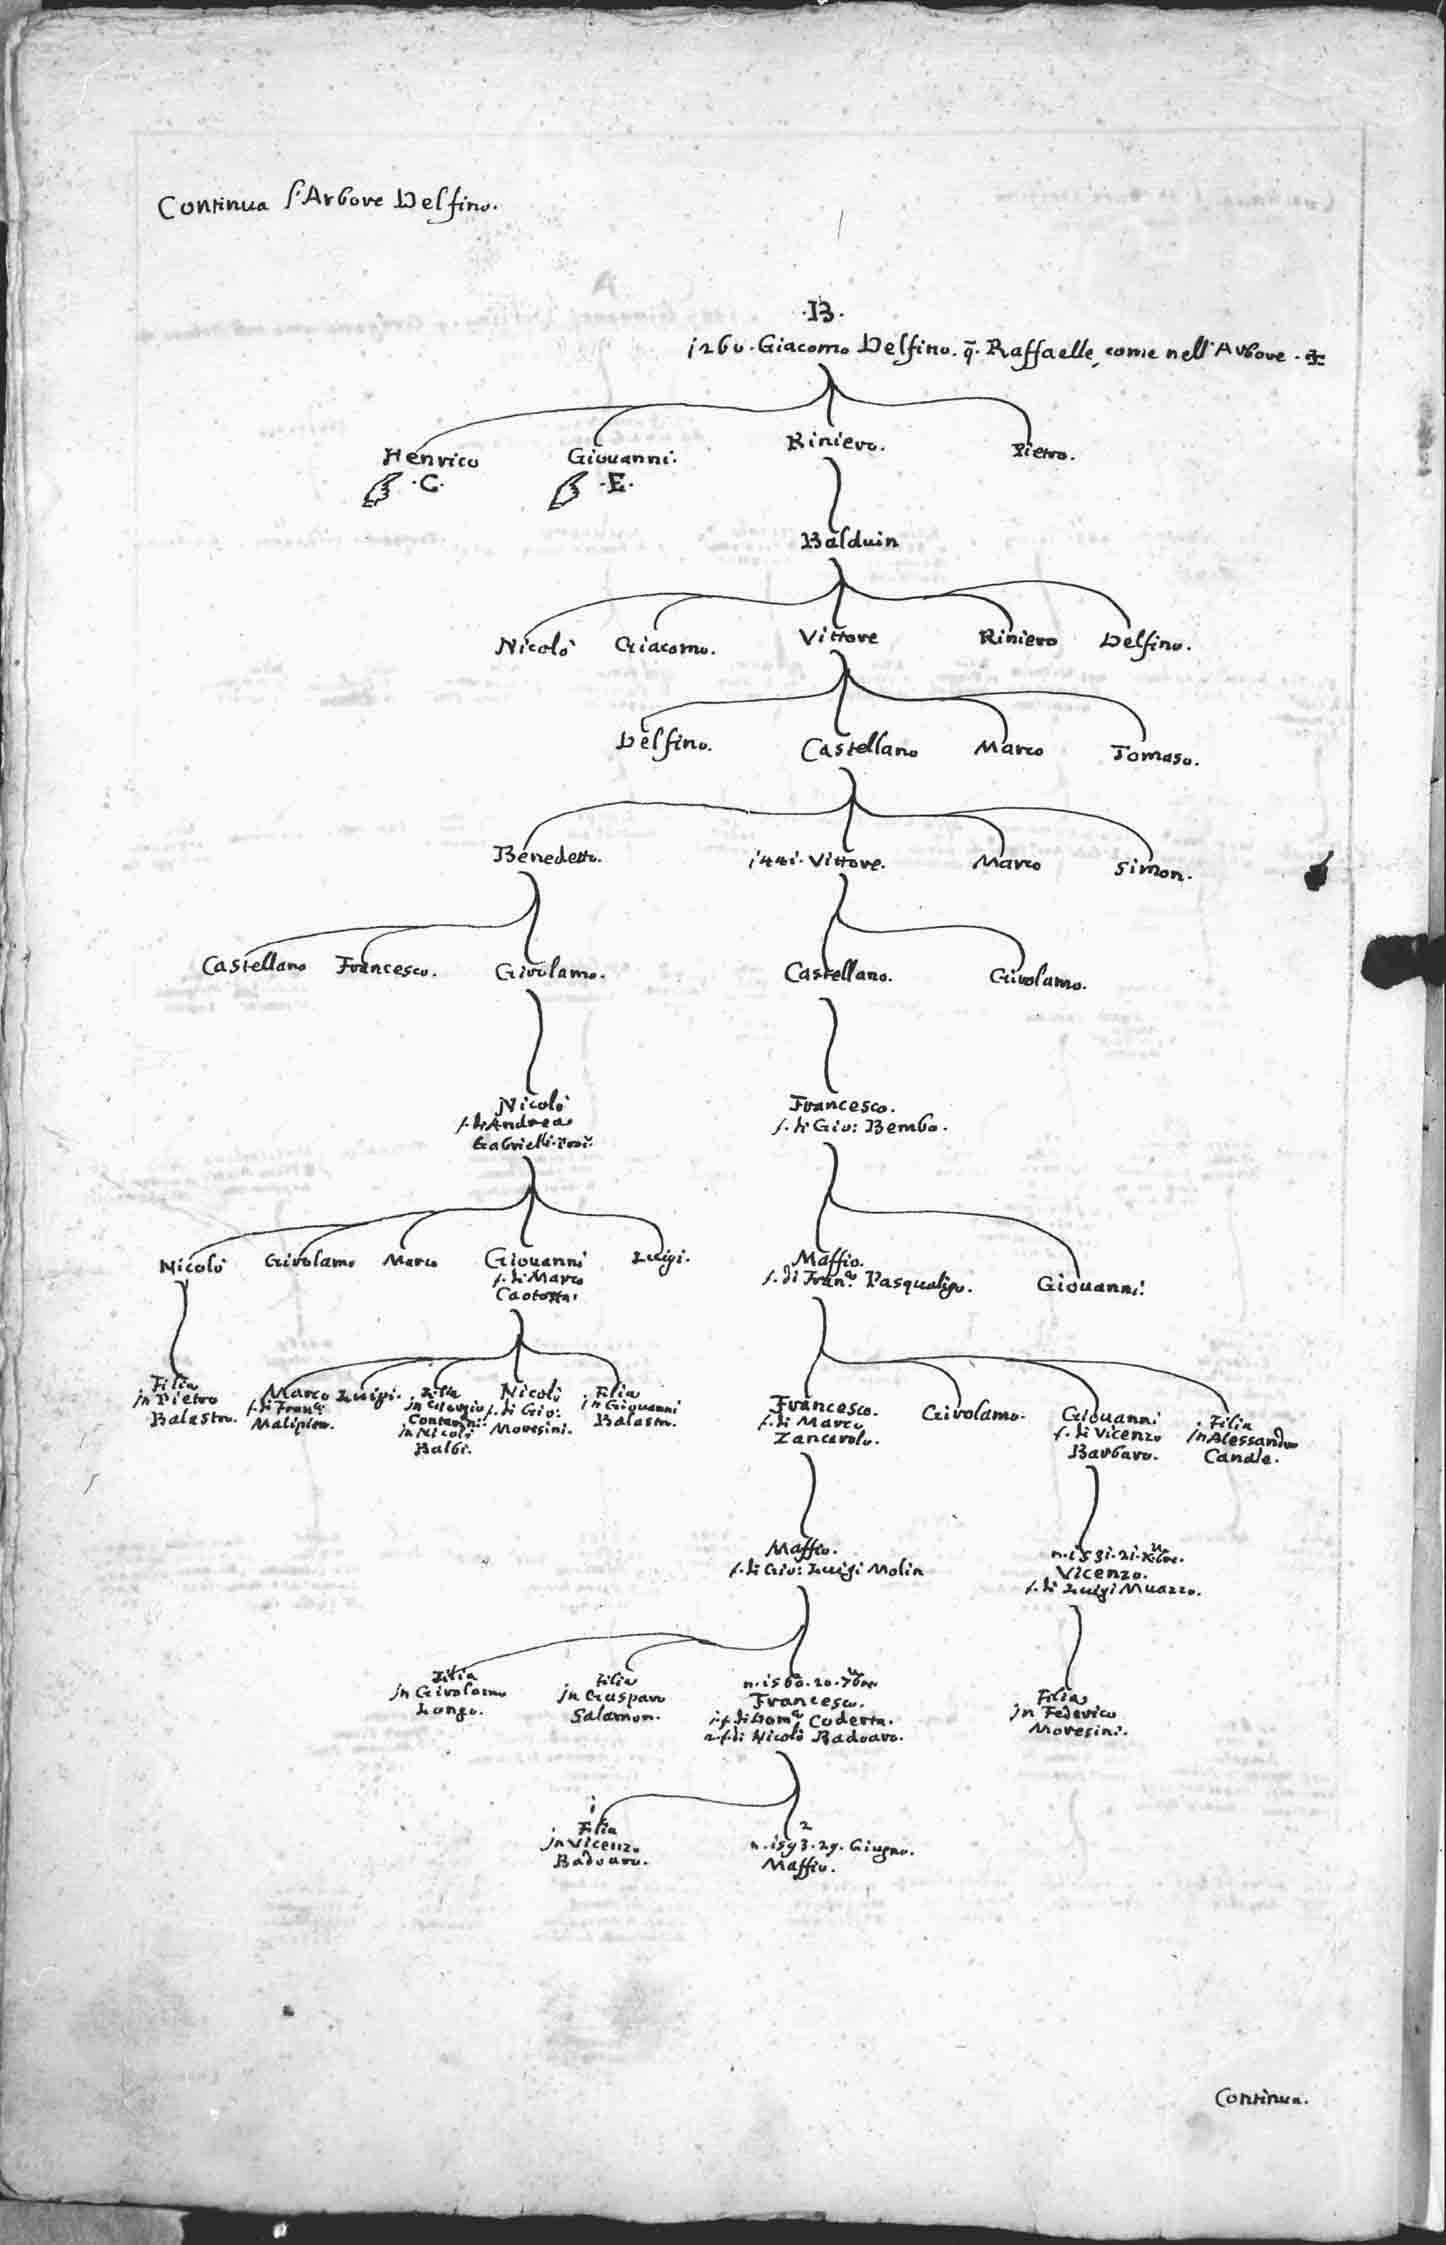 Continua l'Arbore Delfino.
.B.
1260. Giacomo Delfino. q̃. Raffaelle, come nell'Arbore.
Henrico
Giouanni.
Riniero.
Pietro.
.C.
.E.
Balduin
Nicolò
Giacomo.
Vittore
Riniero
Delfino.
Delfino.
Castellano
Marco
Tomaso.
Benedetto.
1441. Vittore.
Marco
Simon.
Castellano
Francesco.
Girolamo.
Castellano.
Girolamo.
Nicolò
f. di Andrea
Gabrielli.
Francesco.
f. di Gio: Bembo.
Nicolò
Girolamo
Marco
Giouanni
f. di Marco
Caotorta.
Luigi.
Maffio.
f. di Fran.co Pasqualigo.
Giouanni.
Filia
jn Pietro
Balastro.
Marco
f. di Fran.co
Malipiero.
Luigi.
Filia
jn Giorgio
Contarini.
jn Nicolò
Balbi.
Nicolò
f. di Gio:
Moresini.
Filia
jn Giouanni
Balastro.
Francesco.
f. di Marco
Zancarolo.
Girolamo.
Giouanni
f. di Vicenzo
Barbaro.
Filia
jn Alessandro
Canale.
Maffio.
f. di Gio: Luigi Molin
n. 1531. 21. Xbre.
Vicenzo.
f. di Luigi Muazzo.
Filia
jn Girolamo
Longo.
Filia
jn Gasparo
Salamon.
n. 1560. 20. 7bre.
Francesco.
1. f. di Dom.co Coderta.
2. f. di Nicolò Badoaro.
Filia
jn Federico
Moresini.
1
Filia
jn Vicenzo
Badoaro.
2
n. 1593. 29. Giugno.
Maffio.
Continua.